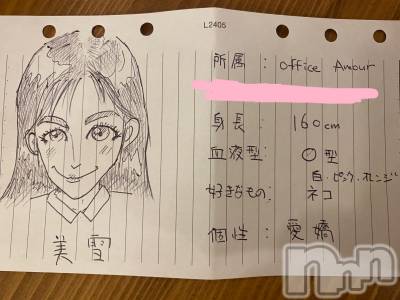 L2405
所属: office Ambur
身長: 160cm
血液型: O型
白・ピンク・オレンジ
好きなもの: ネコ
個性: 愛嬌
美雪
nnn